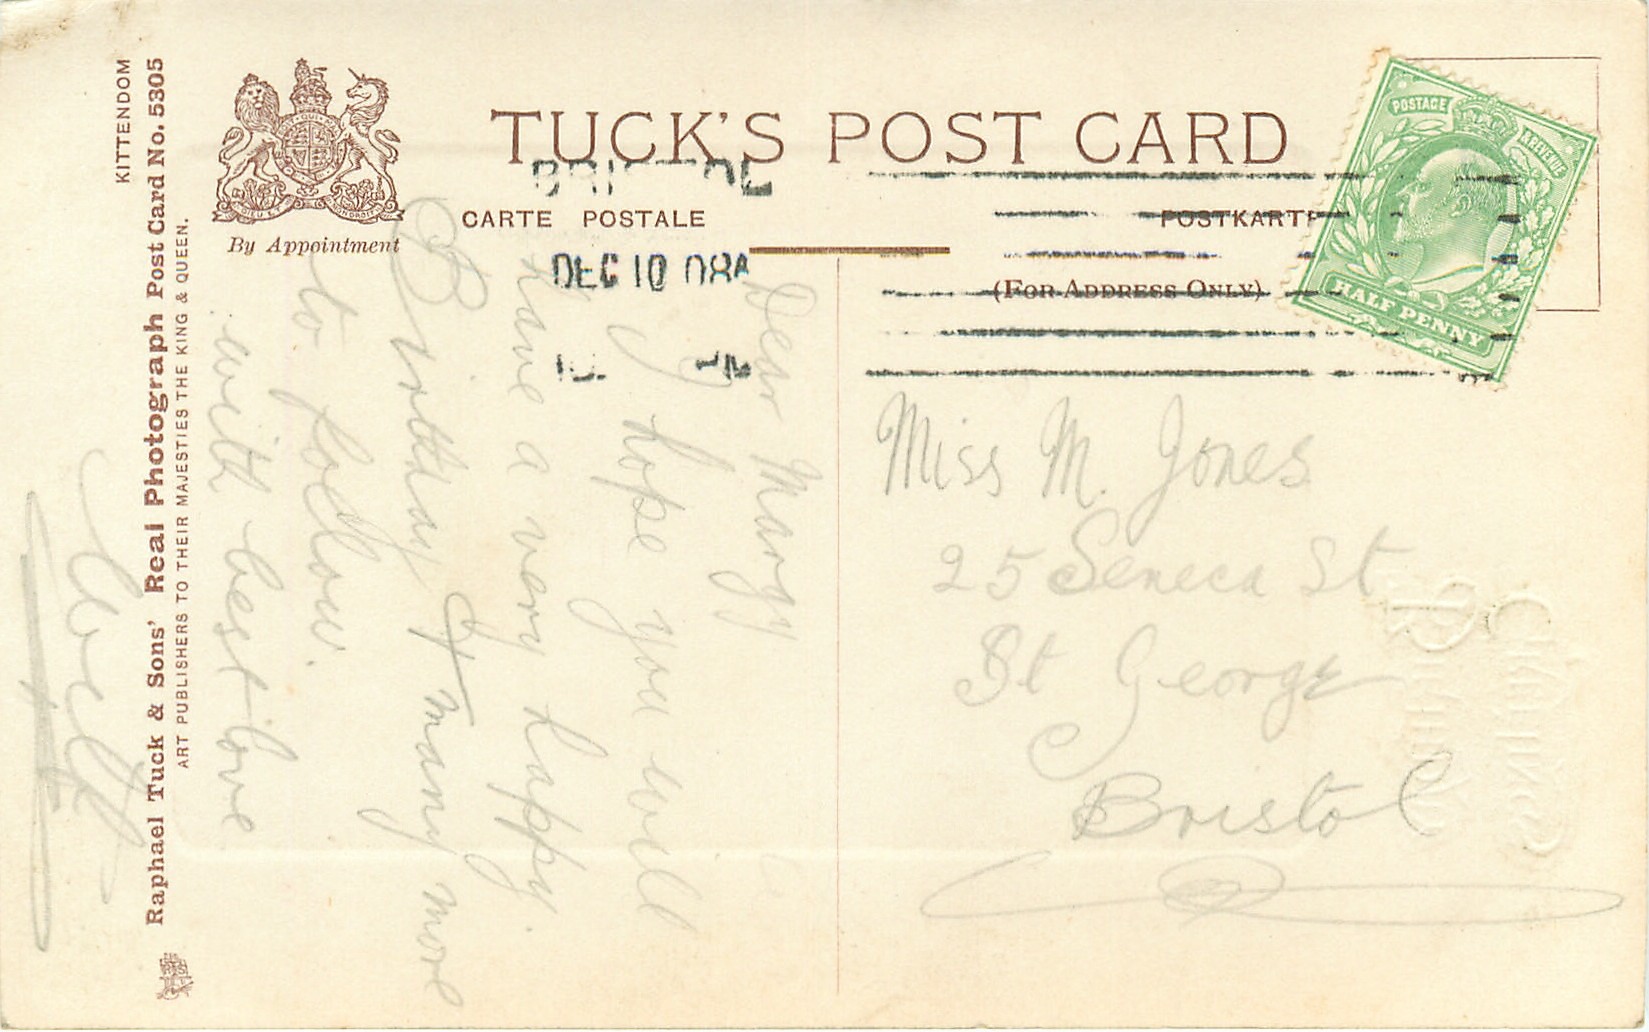 KITTENDOM
Raphael Tuck & Sons' Real Photograph Post Card No. 5305
ART PUBLISHERS TO THEIR MAJESTIES THE KING & QUEEN.
By Appointment
TUCK'S POST CARD
CARTE POSTALE
POSTKARTE
(FOR ADDRESS ONLY)
BRISTOL
DEC 10 08
POSTAGE
& REVENUE
HALF PENNY
Dear Margy
I hope you will
have a very happy
Birthday & many more
to follow.
with best love
Miss M. Jones
25 Seneca St
St George
Bristol